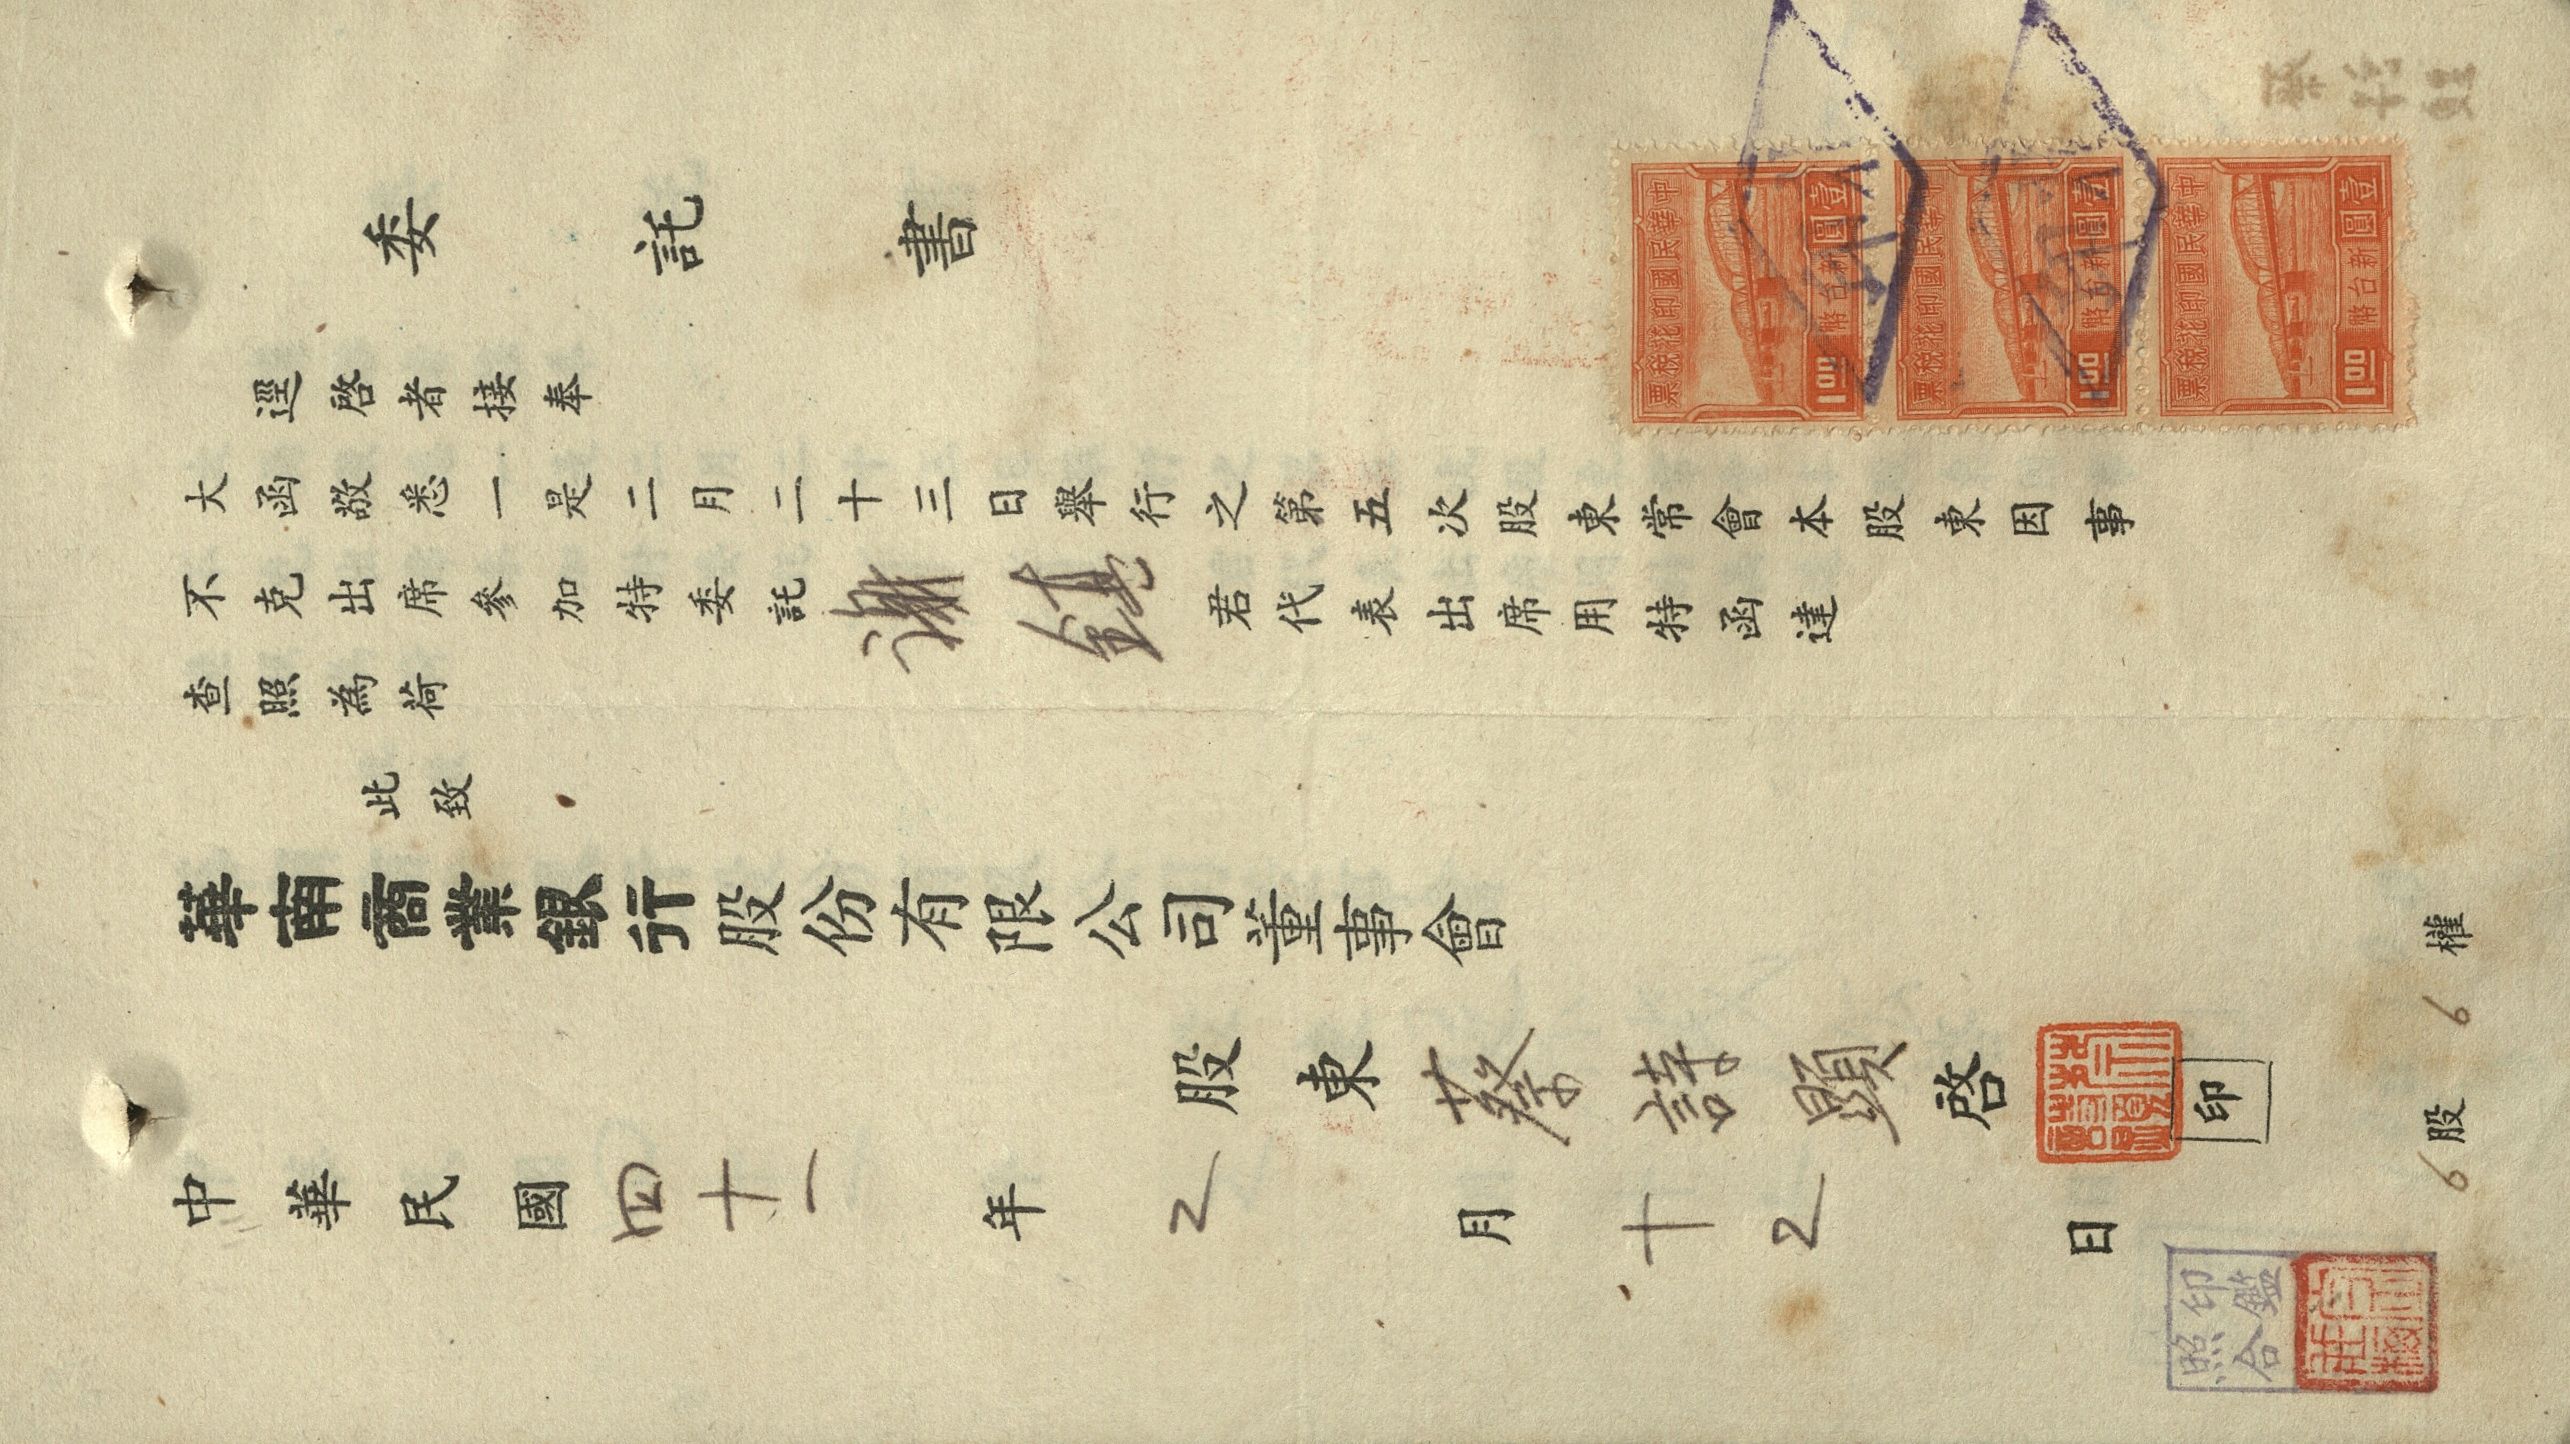 委託書
逕啓者接奉
大函敬悉一是二月二十三日舉行之第五次股東常會本股東因事
不克出席參加特委託謝鎮君代表出席用特函達
查照為荷
此致
華南商業銀行股份有限公司董事會
股東蔡詩顕啓
印
中華民國四十一年2月十2日
6股 6權
印鑑
照合
中華民國印花稅票
壹圓
新台幣
1.00
中華民國印花稅票
壹圓
新台幣
1.00
中華民國印花稅票
壹圓
新台幣
1.00